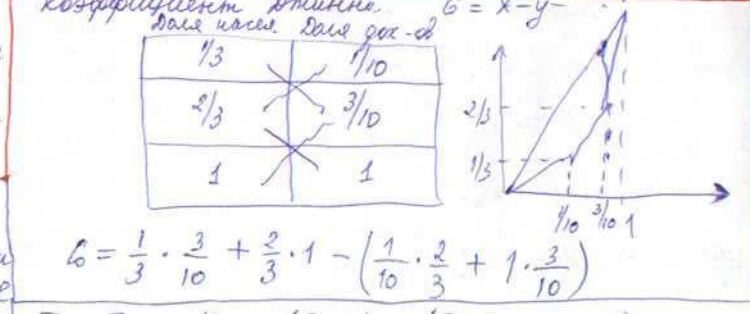 Коэффициент Джинни G = x - y -
Доля насел. Доля дох-ов
1/3 1/10
2/3 3/10
1 1
2/3
1/3
1/10 3/10 1
G = 1/3 · 3/10 + 2/3 · 1 - (1/10 · 2/3 + 1 · 3/10)